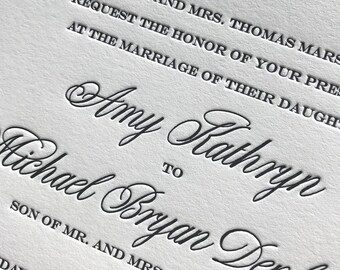 AND MRS. THOMAS
REQUEST THE HONOR OF YOUR
AT THE MARRIAGE OF THEIR
Amy Kathryn
TO
Michael Bryan
SON OF MR. AND MRS